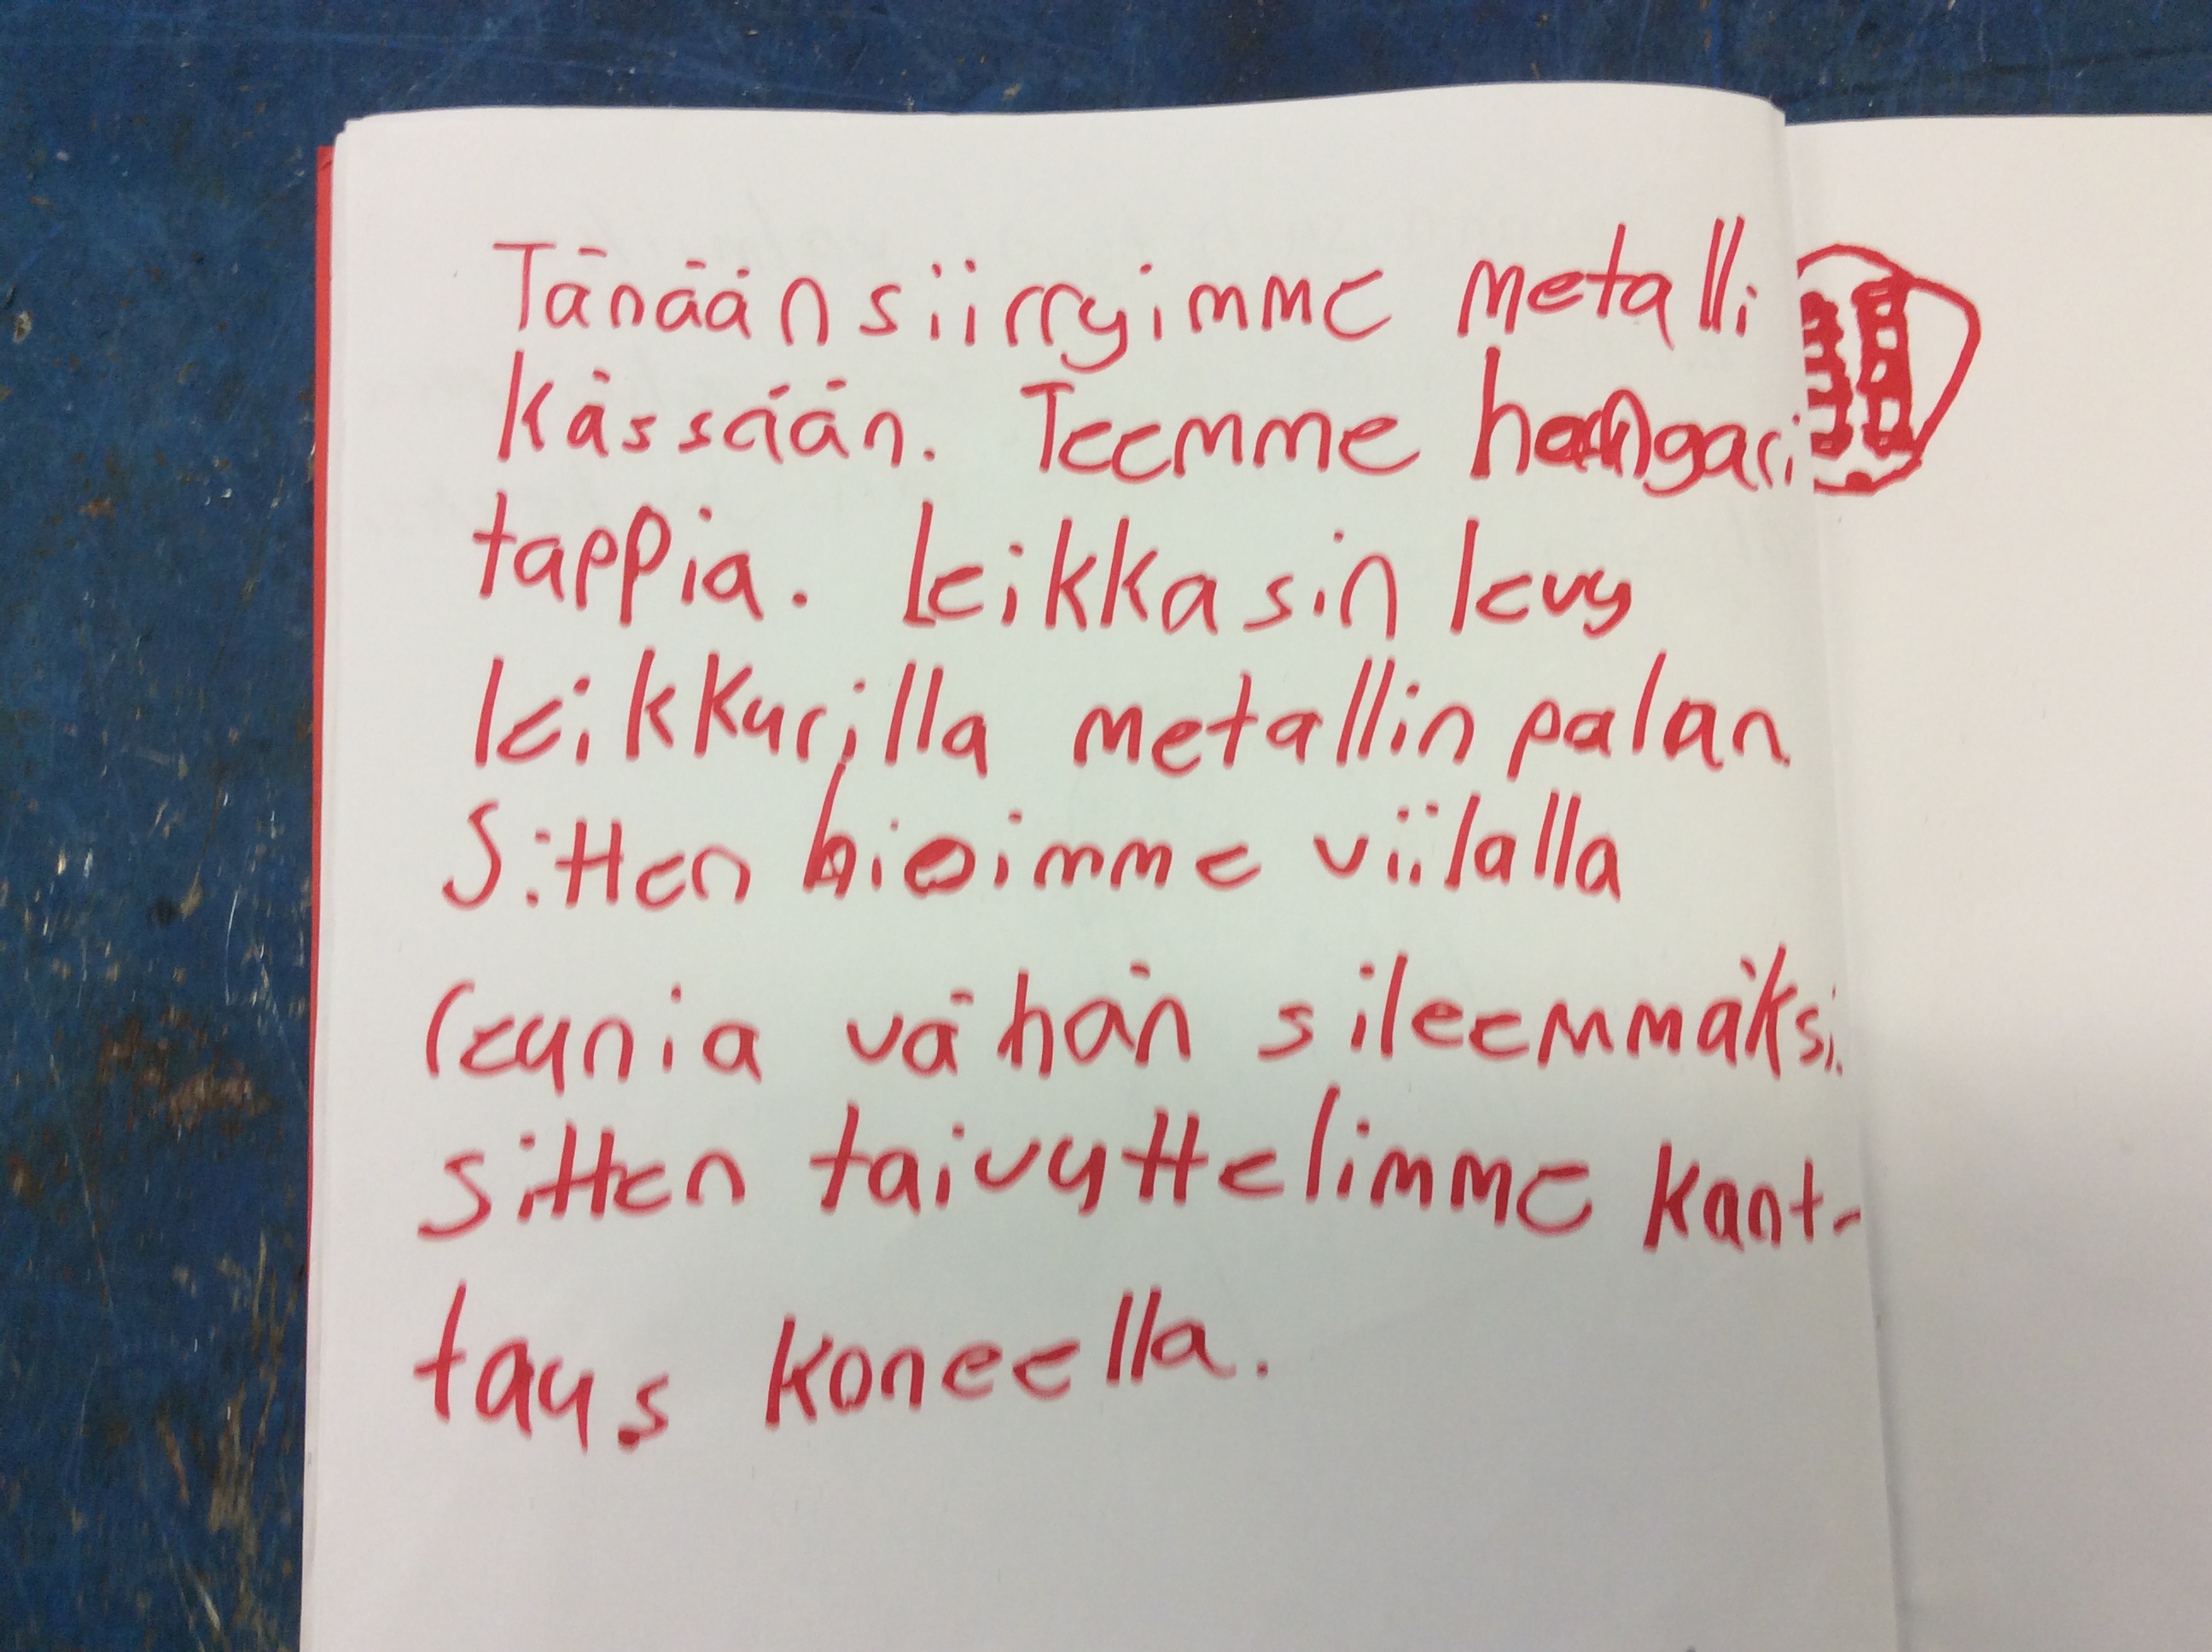 Tänään siirryimme metalli
kässään. Teemme hangari
tappia. Leikkasin levy
leikkurilla metallin palan.
Sitten hioimme viilalla
reunia vähän sileemmäksi.
sitten taivuttelimme kant-
taus koneella.